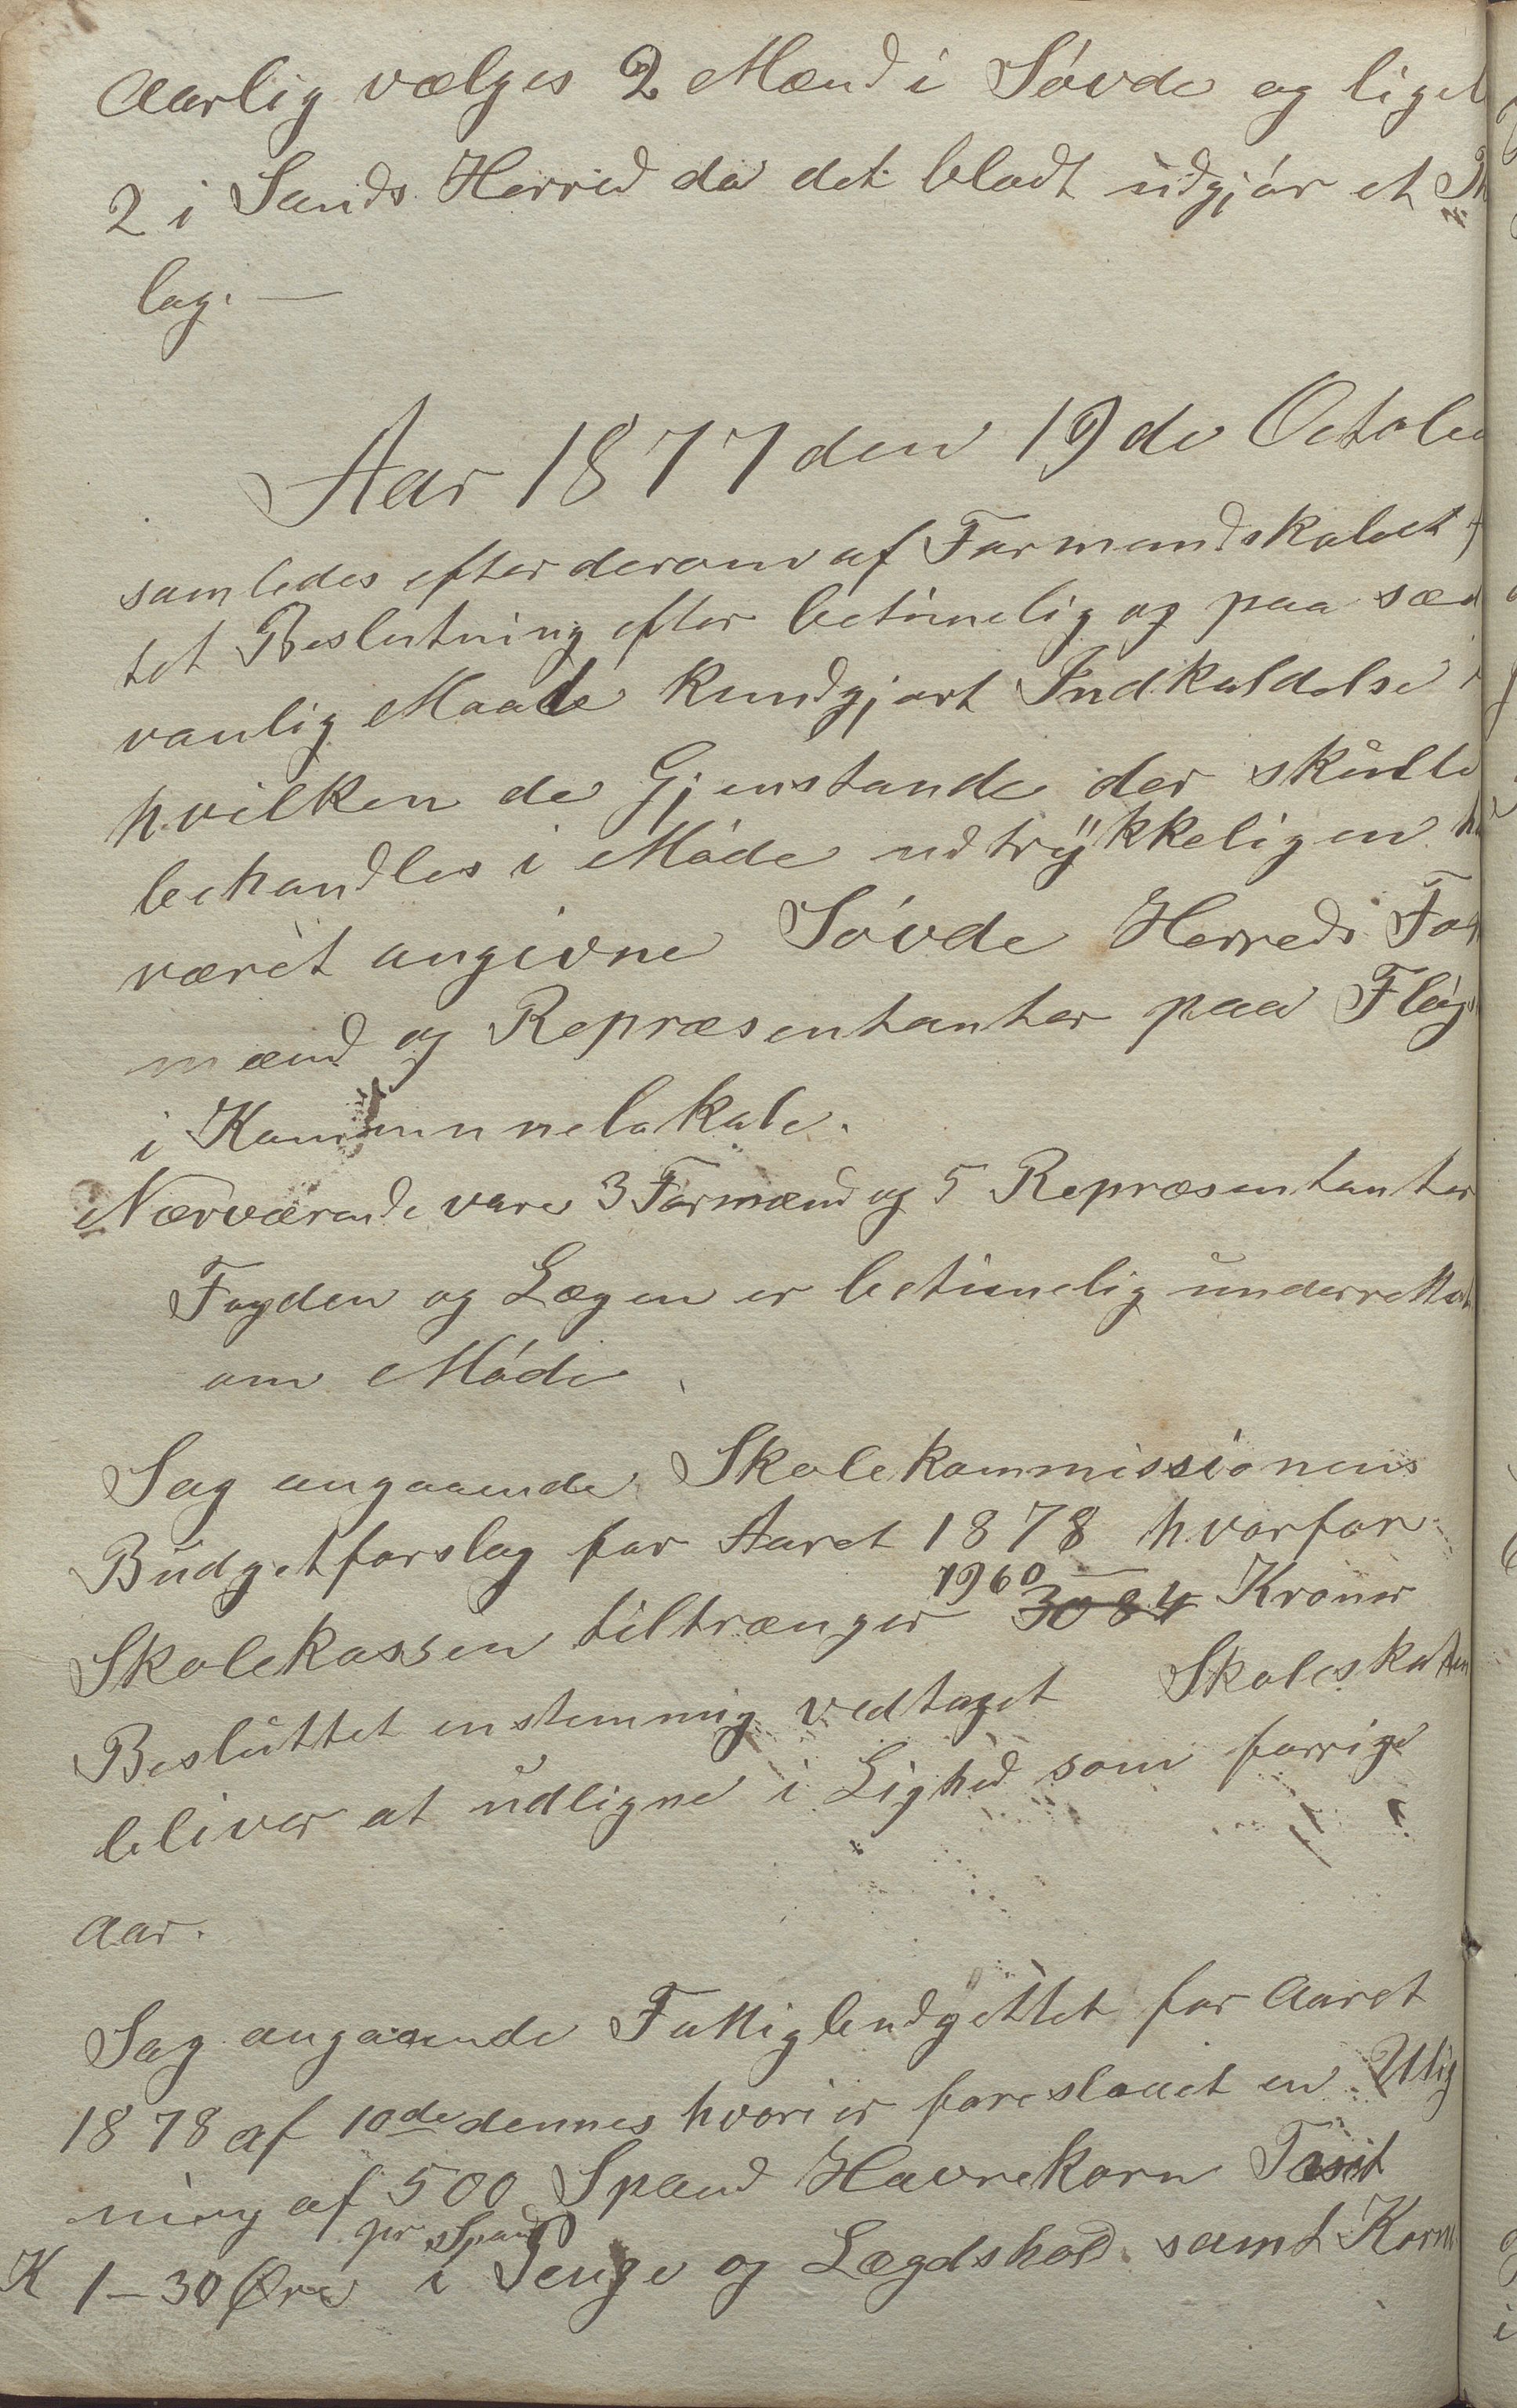 Aarlig vælges 2 Mænd i Søvde og liget
2 i Sands Herred da det blodt udgjør et
lag. —
Aar 1877 den 19de October
samledes efter derom af Formandskabet
tet Beslutning efter betimelig og paa sæd
vanlig Maade kundgjort Indkaldelse i
hvilken de Gjenstande der skulle
behandles i Møde udtrykkeligen
været angivne Søvde Herreds For
mænd og Repræsentanter paa Fløgs
i Kommunelokale.
Nærværende vare 3 Formænd og 5 Repræsentanter
Fogden og Lægen er betimelig underrettet
om Møde
Sag angaaende Skolekommissionens
Budgetforslag for Aaret 1878 hvorfor
Skolekassen tiltrænger 1960 3084 Kroner
Besluttet enstemmig vedtaget Skoleskatten
bliver at udligne i Lighed som forrige
Aar.
Sag angaaende Fattigbudgettet for Aaret
1878 af 10de dennes hvori er foreslaaet en Utlig
ning af 500 Spand Havrekorn Taxt
K 1-30 Øre pr Spand i Penge og Lægdshold samt Korn